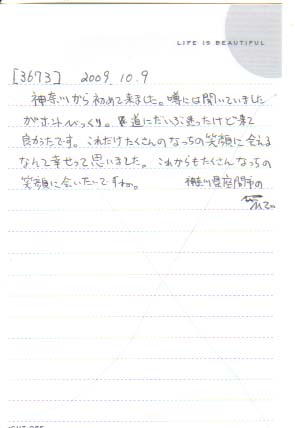 LIFE IS BEAUTIFUL
[3673] 2009.10.9
神奈川から初めて来ました。噂には聞いていました
がホントびっくり。道にだいぶ迷ったけど来て
良かったです。これだけたくさんのなっちの笑顔に会える
なんて幸せって思いました。これからもたくさんなっちの
笑顔に会いたいですね。 神奈川県座間市の